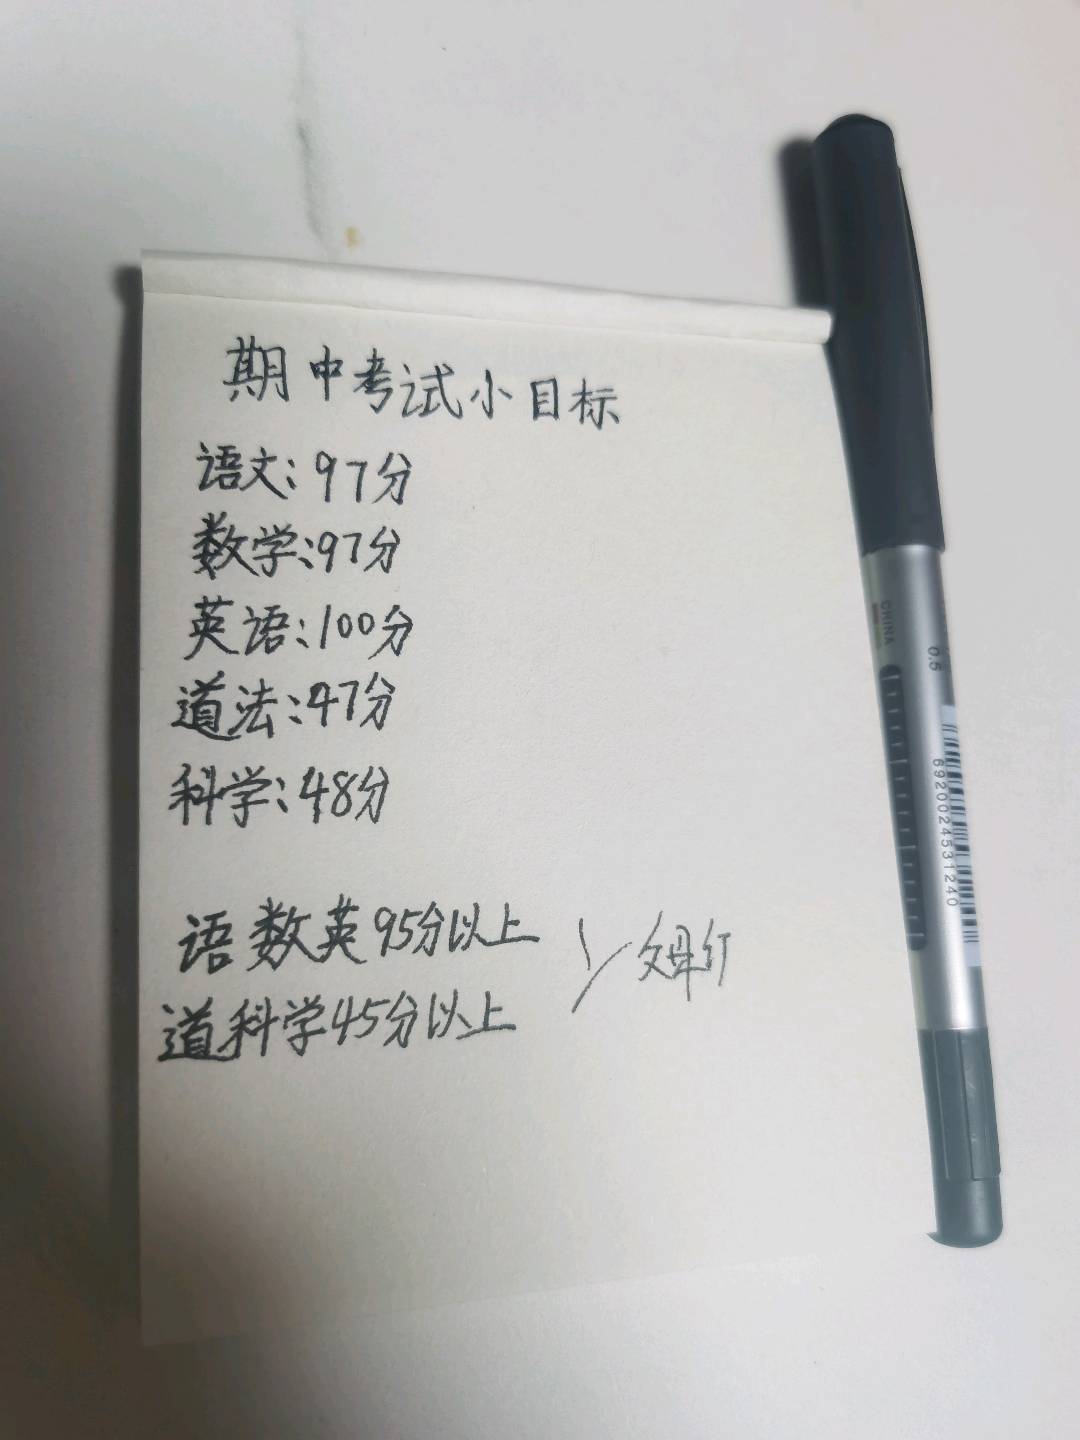 期中考试小目标
语文:97分
数学:97分
英语:100分
道法:47分
科学:48分
语数英95分以上
道科学45分以上
父母钉
CHINA
0.5
6920024531240